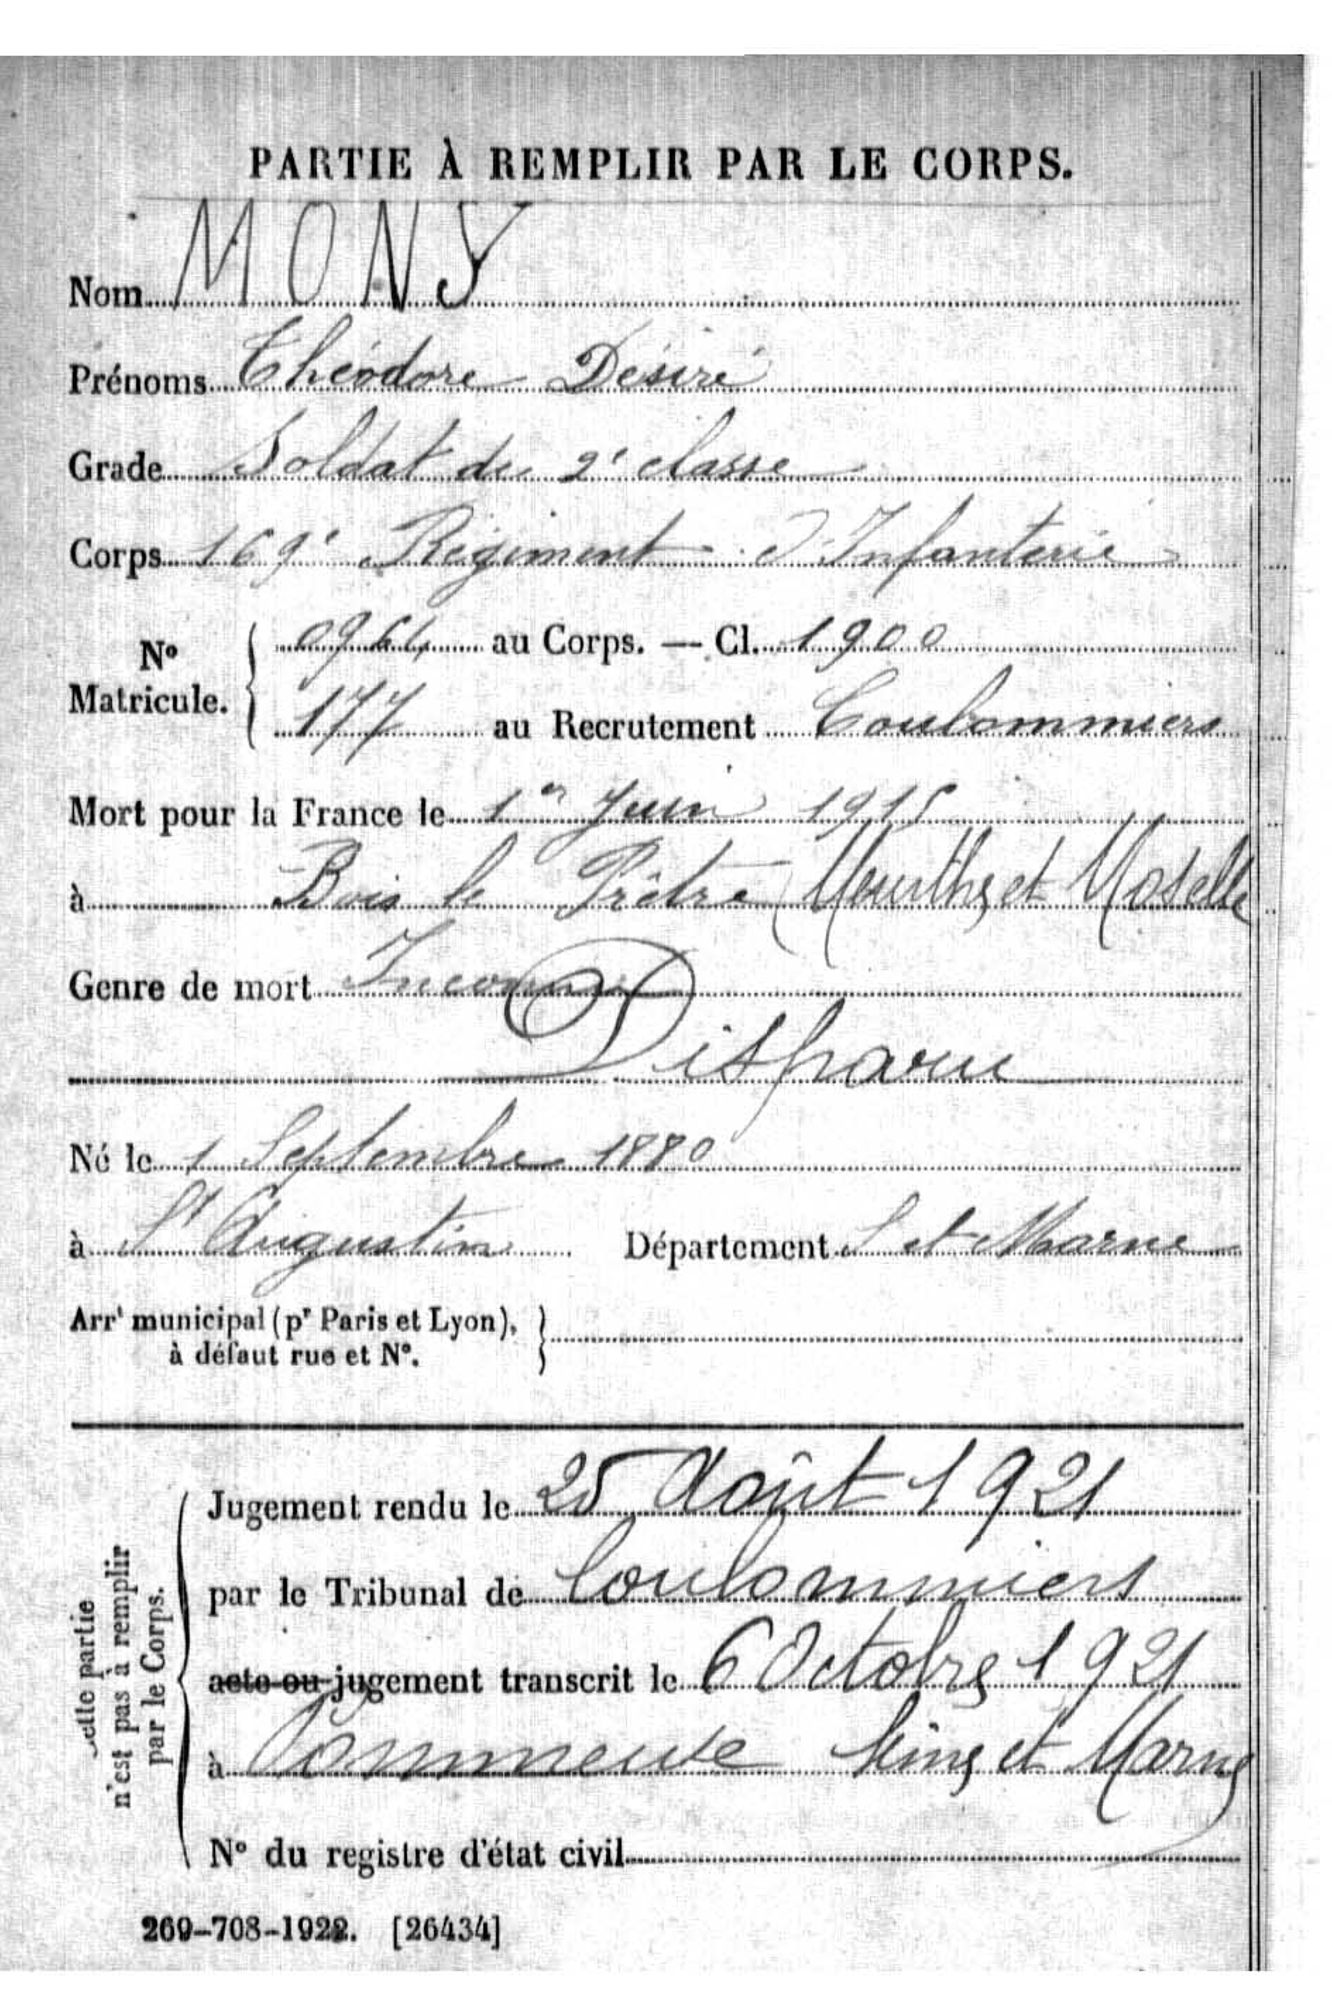 PARTIE À REMPLIR PAR LE CORPS.
Nom MONY
Prénoms Théodore Désiré
Grade Soldat de 2e classe
Corps 169e Régiment d'Infanterie
No Matricule. { 0964 au Corps. — Cl. 1900
177 au Recrutement Coulommiers
Mort pour la France le 1er Juin 1915
à Bois le Prêtre (Meurthe et Moselle
Genre de mort Inconnu
Disparu
Né le 1 Septembre 1880
à St Augustin Département S et Marne
Arrt municipal (pr Paris et Lyon), à défaut rue et No. }
Cette partie n'est pas à remplir par le Corps.
Jugement rendu le 25 Août 1921
par le Tribunal de Coulommiers
acte ou jugement transcrit le 6 Octobre 1921
à Pommeuse Seine et Marne
No du registre d'état civil
269-708-1922. [26434]